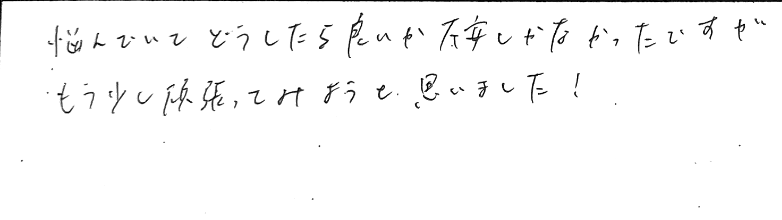 悩んでいて どうしたら良いか 不安しかなかったですが
もう少し頑張ってみようと思いました!